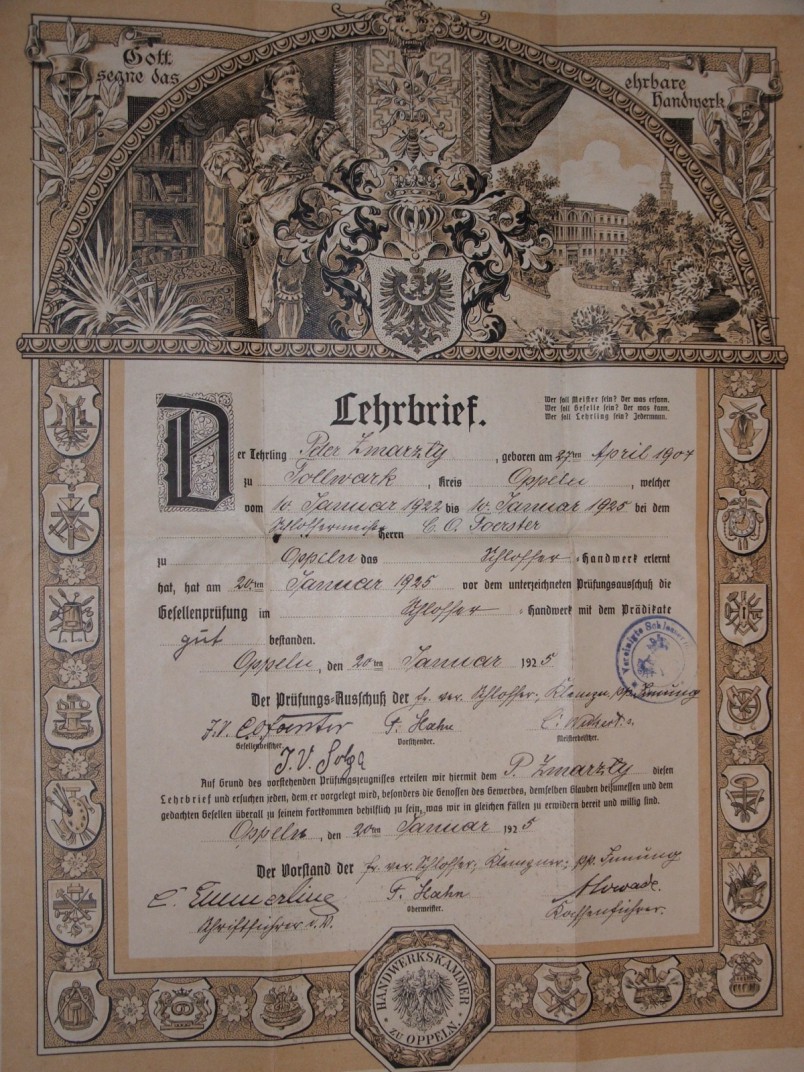 Gott
segne das
ehrbare
Handwerk
Lehrbrief.
Wer soll Meister sein? Der was ersann.
Wer soll Geselle sein? Der was kann.
Wer soll Lehrling sein? Jedermann.
Der Lehrling Peter Zmarzty, geboren am 27ten April 1907
zu Tollwark, Kreis Oppeln, welcher
vom 10. Januar 1922 bis 10. Januar 1925 bei dem
Schlossermeister Herrn C. O. Foerster
zu Oppeln das Schlosser-Handwerk erlernt
hat, hat am 20ten Januar 1925 vor dem unterzeichneten Prüfungsausschuß die
Gesellenprüfung im Schlosser-Handwerk mit dem Prädikate
gut bestanden.
Oppeln, den 20ten Januar 1925
Vereinigte Schlosser
Der Prüfungs-Ausschuß der fr. ver. Schlosser, Klempn., pp. Innung
J. V. C. O. Foerster F. Hahn
Gesellenbeisitzer. Vorsitzender. Meisterbeisitzer.
J. V. Solga
Auf Grund des vorstehenden Prüfungszeugnisses erteilen wir hiermit dem P. Zmarzty diesen
Lehrbrief und ersuchen jeden, dem er vorgelegt wird, besonders die Genossen des Gewerbes, demselben Glauben beizumessen und dem
gedachten Gesellen überall zu seinem Fortkommen behilflich zu sein, was wir in gleichen Fällen zu erwidern bereit und willig sind.
Oppeln, den 20ten Januar 1925
Der Vorstand der fr. ver. Schlosser, Klempner, pp. Innung
C. Emmerling F. Hahn
Obermeister.
Schriftführer i. V. Kassenführer.
HANDWERKSKAMMER
ZU OPPELN.